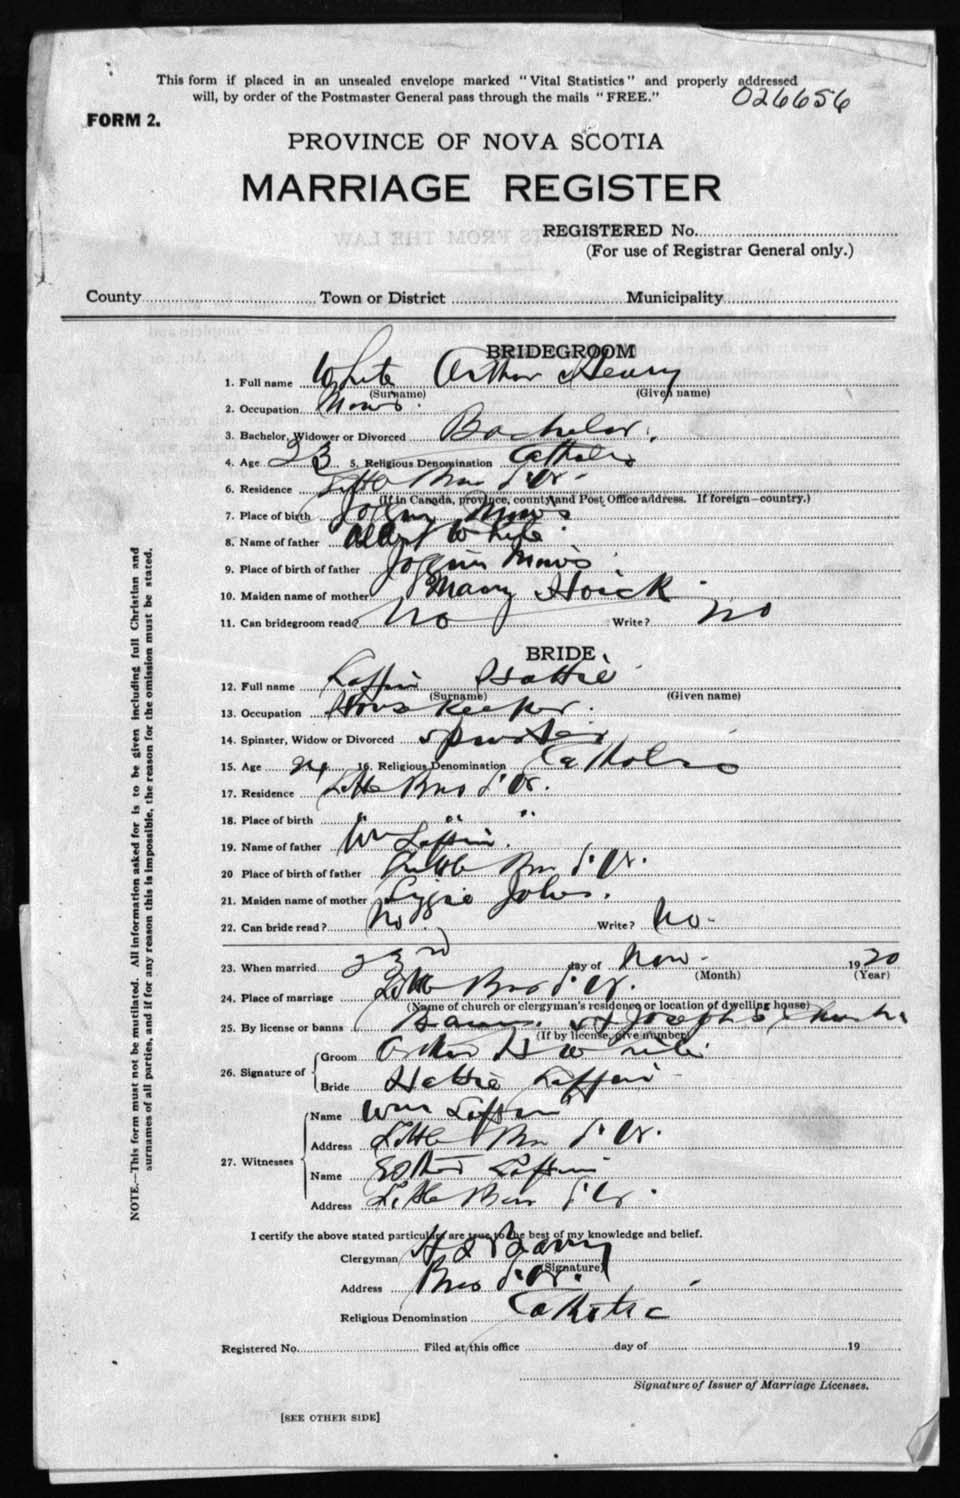 This form if placed in an unsealed envelope marked "Vital Statistics" and properly addressed
will, by order of the Postmaster General pass through the mails "FREE."
026656
FORM 2.
PROVINCE OF NOVA SCOTIA
MARRIAGE REGISTER
REGISTERED No.
(For use of Registrar General only.)
County Town or District Municipality
BRIDEGROOM
1. Full name White Arthur Henry
(Surname) (Given name)
2. Occupation
3. Bachelor, Widower or Divorced Bachelor.
4. Age 23 5. Religious Denomination Catholic
6. Residence Little Bras d'Or
(If in Canada, province, county and Post Office address. If foreign—country.)
7. Place of birth Joggin Mines
8. Name of father White
9. Place of birth of father Joggin Mines
10. Maiden name of mother Mary
11. Can bridegroom read? No Write? No
BRIDE
12. Full name Laffin Hattie
(Surname) (Given name)
13. Occupation Housekeeper.
14. Spinster, Widow or Divorced Spinster
15. Age 16. Religious Denomination Catholic
17. Residence Little Bras d'Or.
18. Place of birth " " "
19. Name of father Wm Laffin.
20 Place of birth of father Little Bras d'Or.
21. Maiden name of mother Lizzie
22. Can bride read? No. Write? No-
23. When married 23rd day of Nov- 1920
(Month) (Year)
24. Place of marriage Little Bras d'Or.
(Name of church or clergyman's residence or location of dwelling house)
25. By license or banns Banns. St Joseph's Church
(If by license, give number)
26. Signature of
Groom Arthur H White
Bride Hattie Laffin
27. Witnesses
Name Wm Laffin
Address Little Bras d'Or.
Name Laffin
Address Little Bras d'Or.
I certify the above stated particulars are true to the best of my knowledge and belief.
Clergyman
(Signature)
Address Bras d'Or.
Religious Denomination Catholic
Registered No. Filed at this office day of 19
Signature of Issuer of Marriage Licenses.
[SEE OTHER SIDE]
NOTE.—This form must not be mutilated. All information asked for is to be given including full Christian and
surnames of all parties, and if for any reason this is impossible, the reason for the omission must be stated.